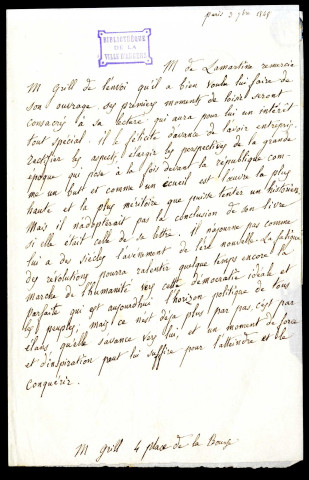 Paris 3 9bre 1849
BIBLIOTHÈQUE
DE LA
VILLE D'
M de Lamartine remercie
M Grill de l'envoi qu'il a bien voulu lui faire de
son ouvrage ses premiers moments de loisir seront
consacrés à sa lecture qui aura pour lui un intérêt
tout spécial. il le félicite d'avance de l'avoir entrepris.
rectifier les aspects élargir les perspectives de la grande
époque qui pose à la fois devant la république com-
me un but et comme un écueil est l'œuvre la plus
haute et la plus méritoire que puisse tenter un historien
Mais il n'adopterait pas la conclusion de son livre
si elle était celle de sa lettre. il n'ajourne pas comme
lui à des siècles l'avènement de l'ère nouvelle. La fatigue
des révolutions pourra ralentir quelque temps encore la
marche de l'humanité vers cette démocratie idéale et
parfaite qui est aujourd'hui l'horizon politique de tous
les peuples; mais ce n'est déjà plus par pas, c'est par
élans qu'elle s'avance vers lui, et un moment de force
et d'inspiration peut lui suffire pour l'atteindre et le
conquérir.
M Grill 4 place de la Bourse